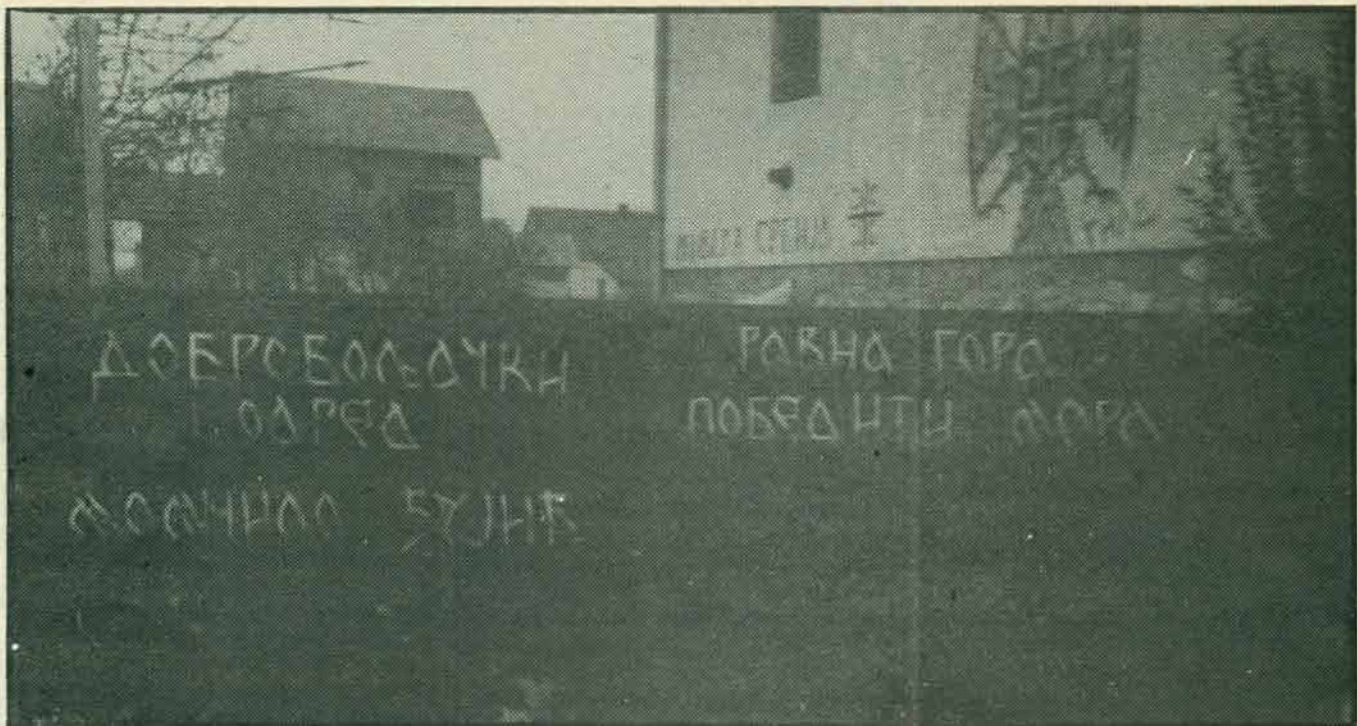 ДОБРОВОЉАЧКИ
ОДРЕД
МОМЧИЛО ЂУЈИЋ
РАВНА ГОРА
ПОБЕДИТИ МОРА